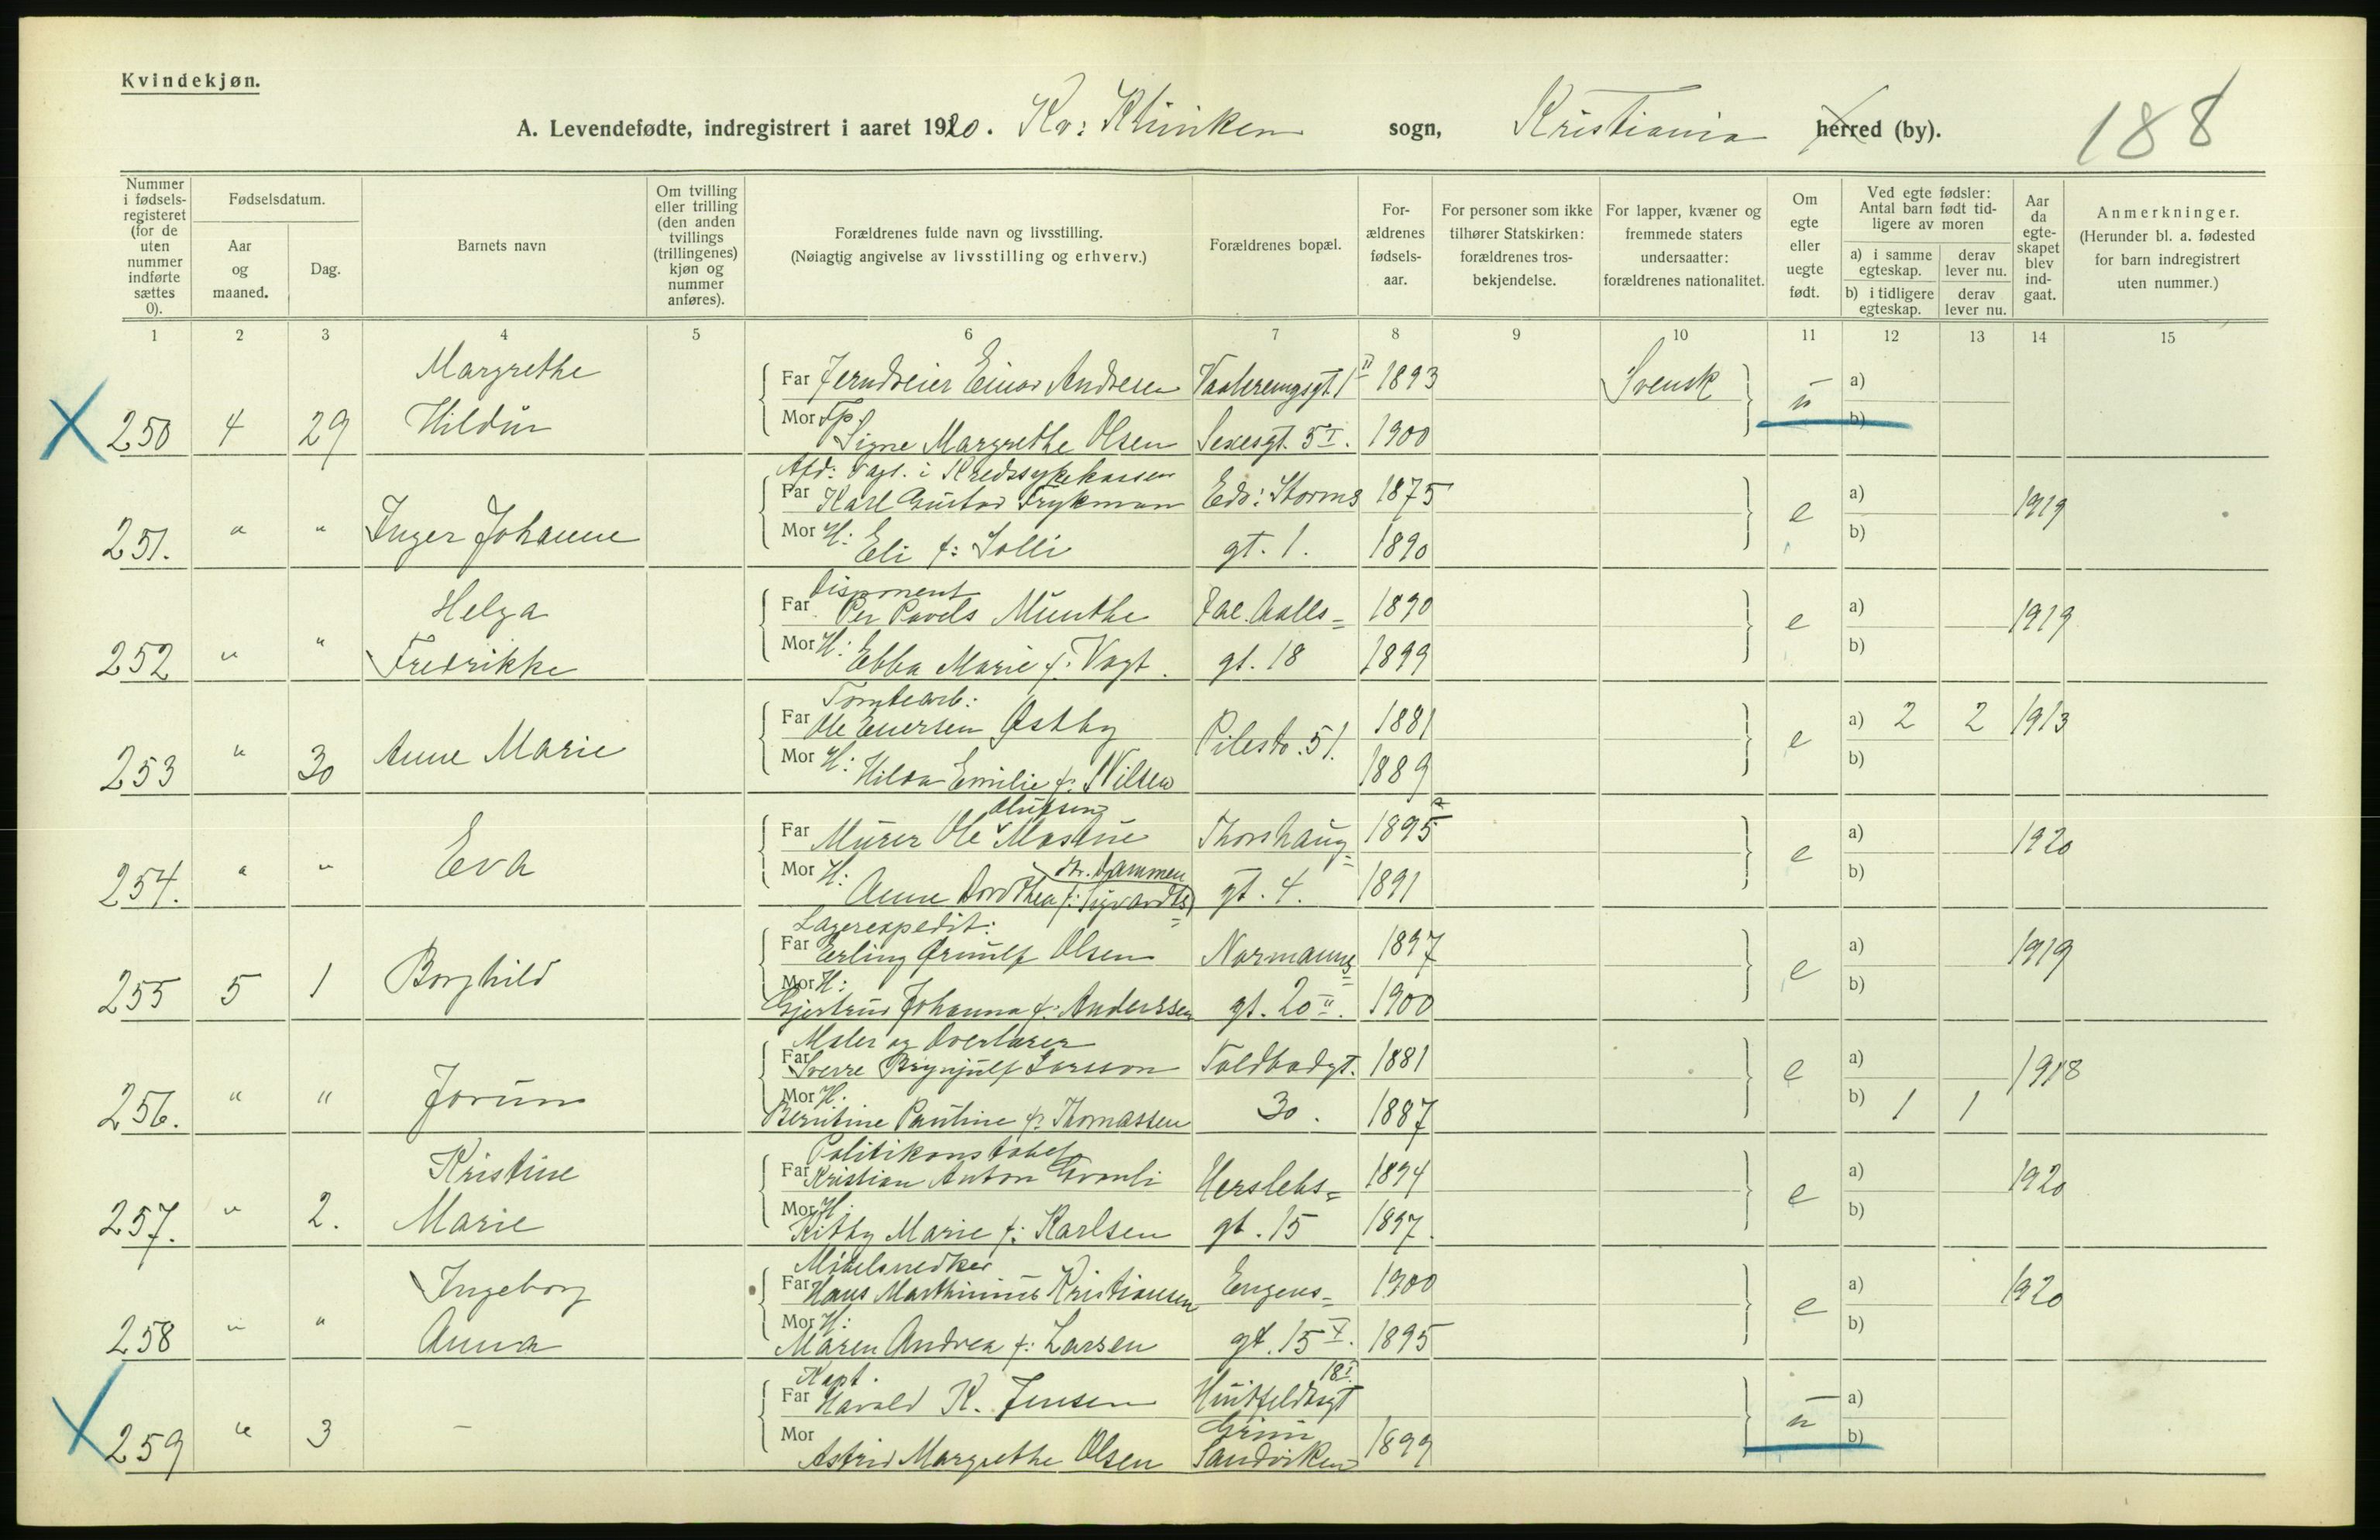 Kvindekjøn.
A. Levendefødte, indregistrert i aaret 1920. Kv: Kliniken sogn, Kristiania herred (by).
188
Nummer i fødselsregisteret (for de uten nummer indførte sættes 0).
Fødselsdatum.
Aar og maaned.
Dag.
Barnets navn
Om tvilling eller trilling (den anden tvillings (trillingenes) kjøn og nummer anføres).
Forældrenes fulde navn og livsstilling.
(Nøiagtig angivelse av livsstilling og erhverv.)
Forældrenes bopæl.
Forældrenes fødselsaar.
For personer som ikke tilhører Statskirken: forældrenes trosbekjendelse.
For lapper, kvæner og fremmede staters undersaatter: forældrenes nationalitet.
Om egte eller uegte født.
Ved egte fødsler: Antal barn født tidligere av moren
a) i samme egteskap. derav lever nu.
b) i tidligere egteskap. derav lever nu.
Aar da egteskapet blev indgaat.
Anmerkninger.
(Herunder bl. a. fødested for barn indregistrert uten nummer.)
1 2 3 4 5 6 7 8 9 10 11 12 13 14 15
Margrethe
Far Jerndreier Einar Andresen Vaalerenggt. 1 II 1893 Svensk a)
250 4 29 Hildur u b)
Mor Fp. Signe Margrethe Olsen Sexesgt. 5 I. 1900
Afd: Fagl. i Kredssykekassen
Far Karl Gustav Frykman Edv: Storms 1875 a) 1919
251. " " Inger Johanne e
Mor H: Eli f: Solli gt. 1. 1890 b)
Helga Disponent
Far Per Pavels Munthe Jac. Aalls= 1890 a) 1919
252 " " Fredrikke e
Mor H: Ebba Marie f: Vogt. gt. 18 1899 b)
Tomtearb:
Far Ole Enersen Østby 1881 a) 2 2 1913
253 " 30 Anne Marie Pilestr. 51. e
Mor H: Hilda Emilie f: Nilsen 1889 b)
Olufsen
Far Murer Ole Mastue Thorshaug= 1895 a) 1920
254. " " Eva e
Mor H: Anne Dorothea f: Sigvardts= gt. 4. 1891 b)
Lagerexpedit:
Far Erling Ørnulf Olsen Normanns= 1897 a) 1919
255 5 1 Borghild e
Mor H: Gjertrud Johanna f: Anderssen gt. 20 II. 1900 b)
Maler og Overlærer
Far Sverre Brynjulf Larsson Toldbodgt. 1881 a) 1918
256. " " Jorun e
Mor H: Berntine Pauline f: Thomassen 30. 1887 b) 1 1
Kristine Politikonstabel
Far Kristian Anton Gromli Herslebs= 1894 a) 1920
257. " 2. Marie e
Mor H: Kitty Marie f: Karlsen gt. 15 1897. b)
Ingeborg Møbelsnedker
Far Hans Marthinius Kristiansen Engens= 1900 a) 1920
258 " " Anna e
Mor H: Maren Andrea f: Larsen gt. 15 I. 1895 b)
Kapt. 18 I.
Far Harald K. Jensen Huitfeldtsgt a)
259 " 3 - u b)
Mor Astrid Margrethe Olsen Sandviken 1899